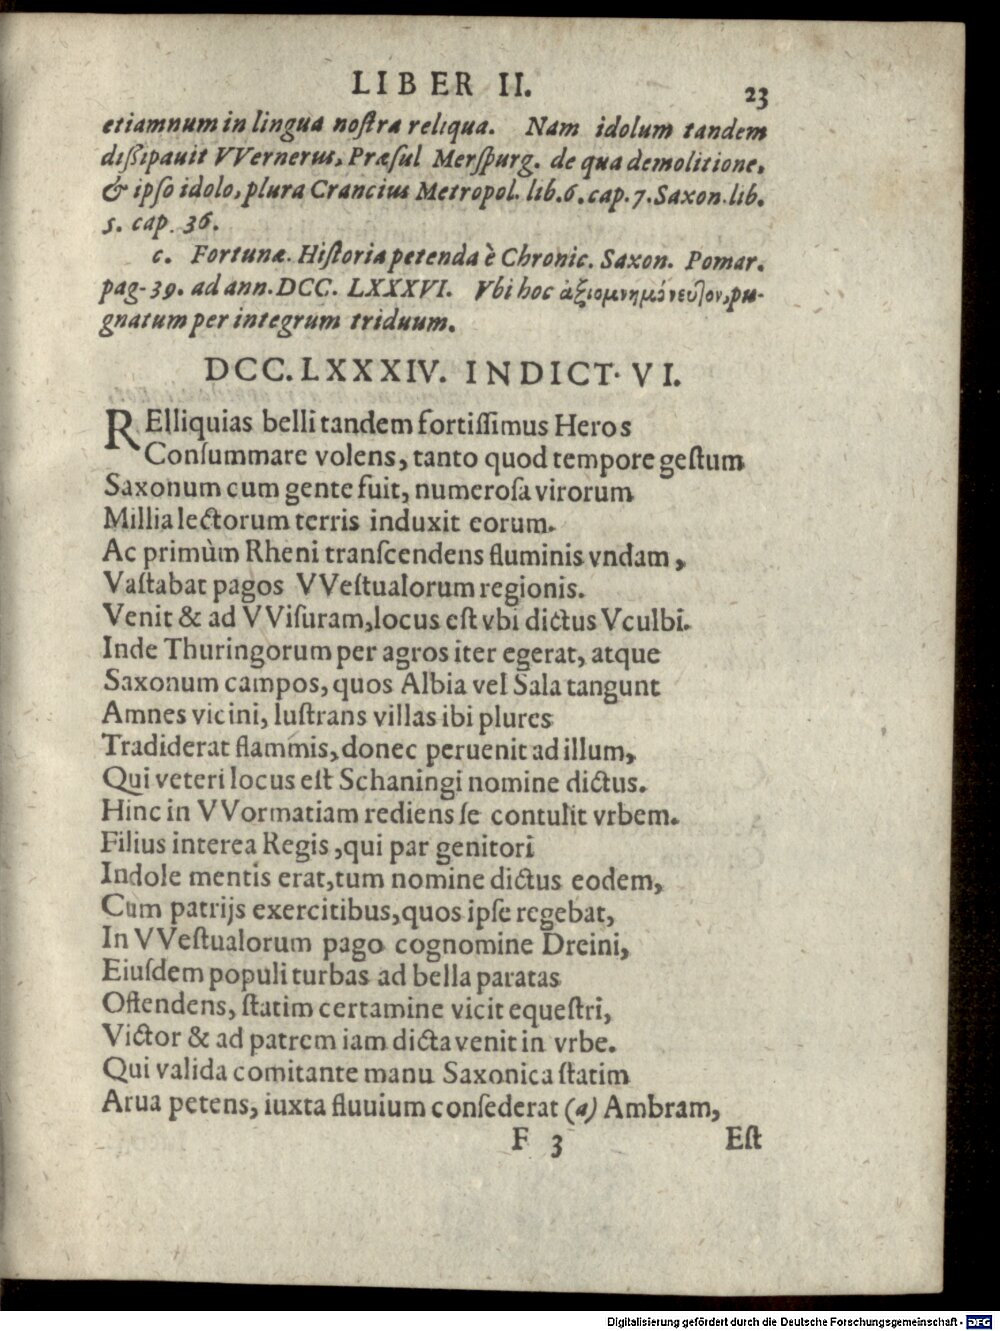 LIBER II. 23
etiamnum in lingua nostra reliqua. Nam idolum tandem
dissipauit VVernerus, Præsul Merspurg. de qua demolitione,
& ipso idolo, plura Crancius Metropol. lib. 6. cap. 7. Saxon. lib.
5. cap. 36.
c. Fortunæ. Historia petenda è Chronic. Saxon. Pomar.
pag. 39. ad ann. DCC. LXXXVI. Vbi hoc ἀξιομνημόνευτον, pu-
gnatum per integrum triduum.
DCC. LXXXIV. INDICT. VI.
RElliquias belli tandem fortissimus Heros
Consummare volens, tanto quod tempore gestum
Saxonum cum gente fuit, numerosa virorum
Millia lectorum terris induxit eorum.
Ac primùm Rheni transcendens fluminis vndam,
Vastabat pagos VVestualorum regionis.
Venit & ad VVisuram, locus est vbi dictus Vculbi.
Inde Thuringorum per agros iter egerat, atque
Saxonum campos, quos Albia vel Sala tangunt
Amnes vicini, lustrans villas ibi plures
Tradiderat flammis, donec peruenit ad illum,
Qui veteri locus est Schaningi nomine dictus.
Hinc in VVormatiam rediens se contulit vrbem.
Filius interea Regis, qui par genitori
Indole mentis erat, tum nomine dictus eodem,
Cum patrijs exercitibus, quos ipse regebat,
In VVestualorum pago cognomine Dreini,
Eiusdem populi turbas ad bella paratas
Ostendens, statim certamine vicit equestri,
Victor & ad patrem iam dicta venit in vrbe.
Qui valida comitante manu Saxonica statim
Arua petens, iuxta fluuium consederat (a) Ambram,
F 3 Est
Digitalisierung gefördert durch die Deutsche Forschungsgemeinschaft - DFG